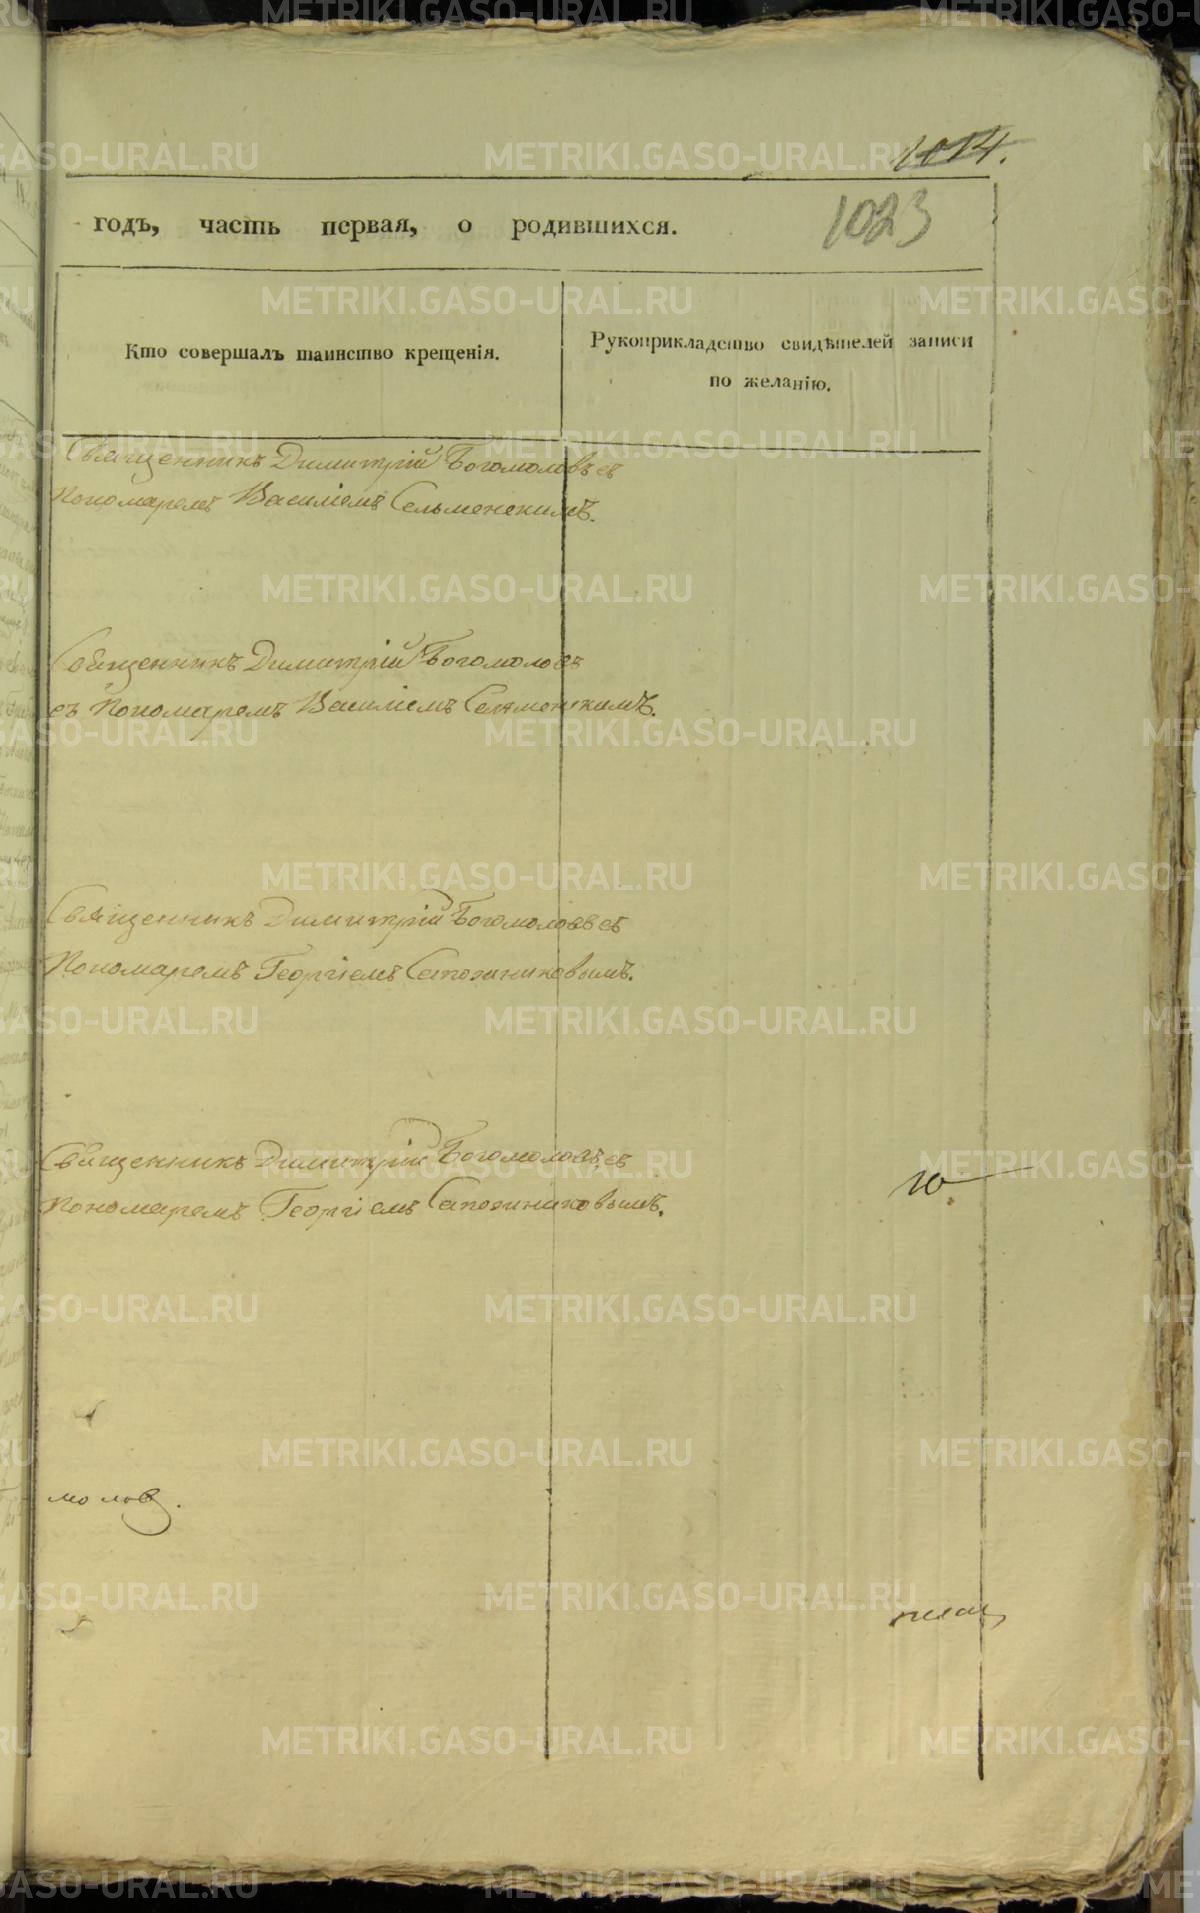 1014.
1023
годъ, часть первая, о родившихся.
Кто совершалъ таинство крещенія.
Рукоприкладство свидѣтелей записи
по желанію.
Священникъ Димитрій Богомоловъ съ
Пономаремъ Василіемъ Сельменскимъ.
Священникъ Димитрій Богомоловъ
съ Пономаремъ Василіемъ Сельменскимъ.
Священникъ Димитрій Богомоловъ съ
Пономаремъ Георгіемъ Сапожниковымъ.
Священникъ Димитрій Богомоловъ съ
Пономаремъ Георгіемъ Сапожниковымъ.
моловъ.
METRIKI.GASO-URAL.RU